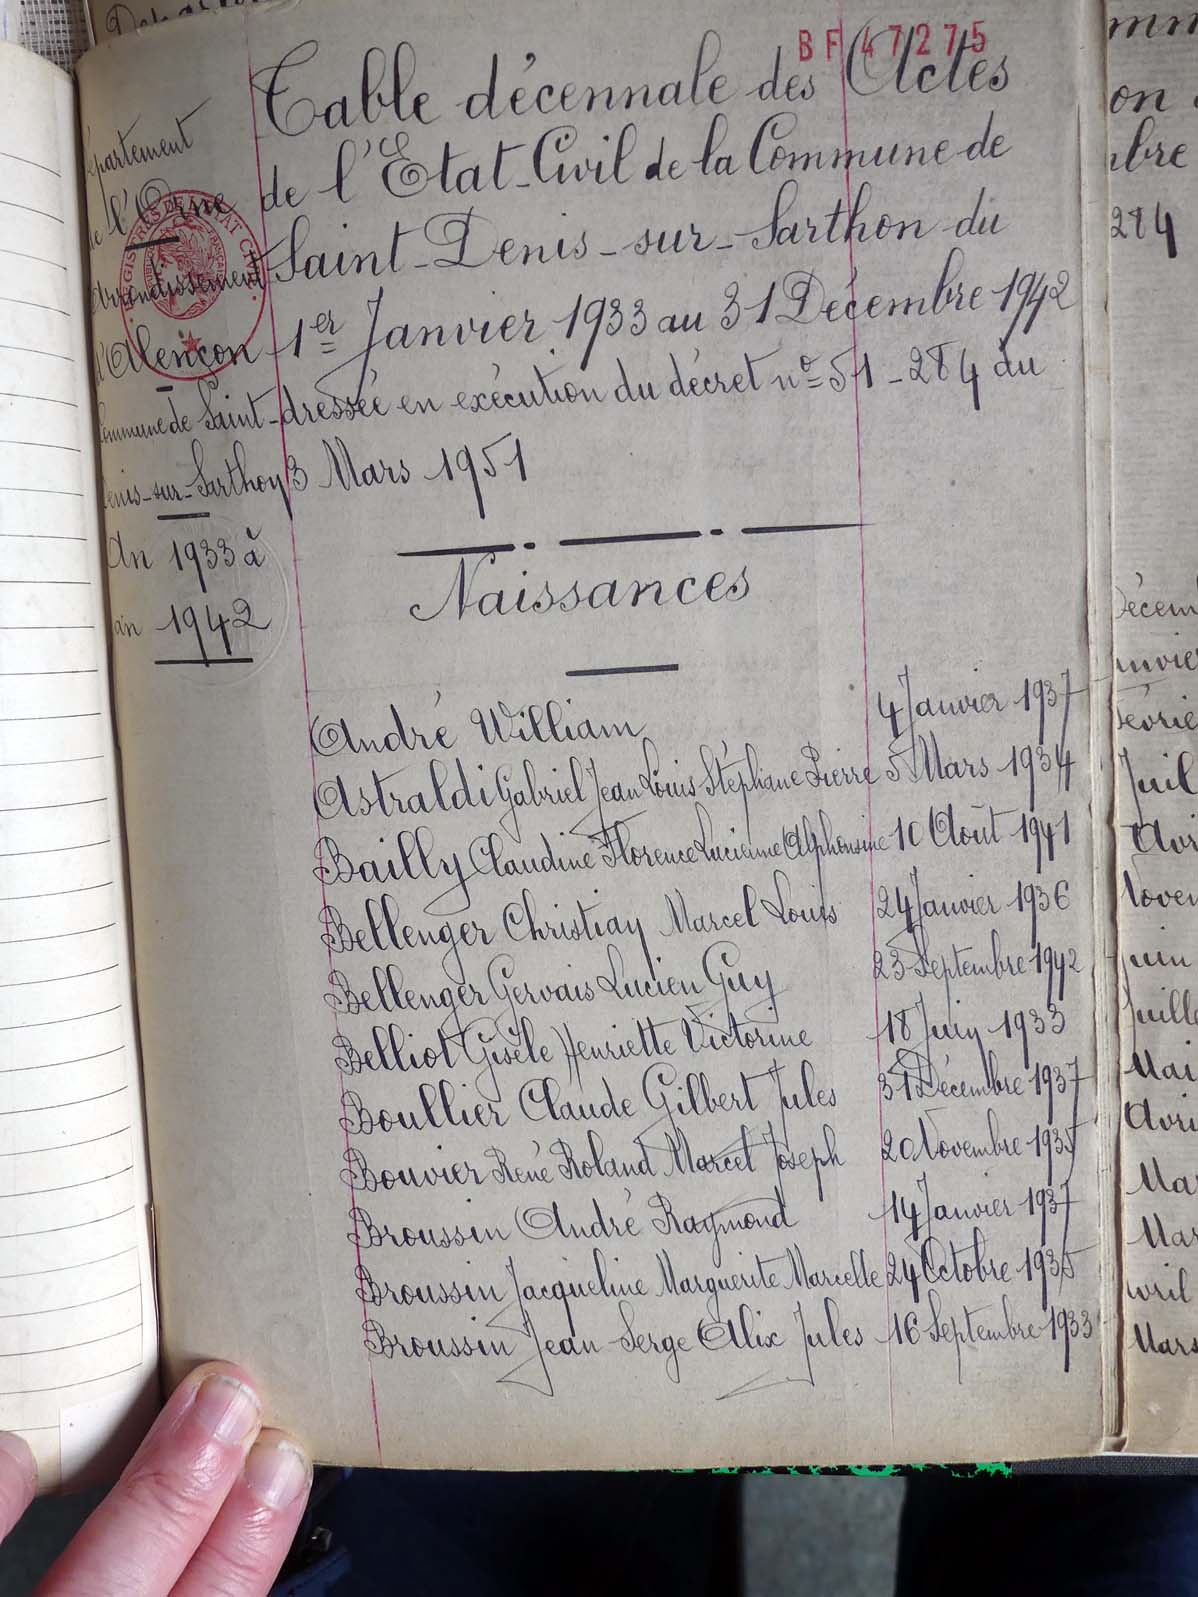 BF 47275
Table décennale des Actes
de l'Etat-Civil de la Commune de
Saint-Denis-sur-Sarthon du
1er Janvier 1933 au 31 Décembre 1942
dressée en exécution du décret n° 51-284 du
3 Mars 1951
épartement
de l'Orne
Arrondissement
d'Alençon
Commune de Saint-
Denis-sur-Sarthon
An 1933 à
an 1942
REGISTRES DE L'ETAT CIVIL
Naissances
André William 4 Janvier 1937
Astraldi Gabriel Jean Louis Stéphane Pierre 5 Mars 1934
Bailly Claudine Florence Lucienne Alphonsine 10 Août 1941
Bellenger Christian Marcel Louis 24 Janvier 1936
Bellenger Gervais Lucien Guy 23 Septembre 1942
Belliot Gisèle Henriette Victorine 18 Juin 1933
Boullier Claude Gilbert Jules 31 Décembre 1937
Bouvier René Roland Marcel Joseph 20 Novembre 1935
Broussin André Raymond 14 Janvier 1937
Broussin Jacqueline Marguerite Marcelle 24 Octobre 1935
Broussin Jean Serge Alix Jules 16 Septembre 1933
on
mbre
284
Décem
anvie
Févrie
Juil
Avr
Noven
Juin
Juille
Mai
Avri
Mar
Mar
vril
Mars